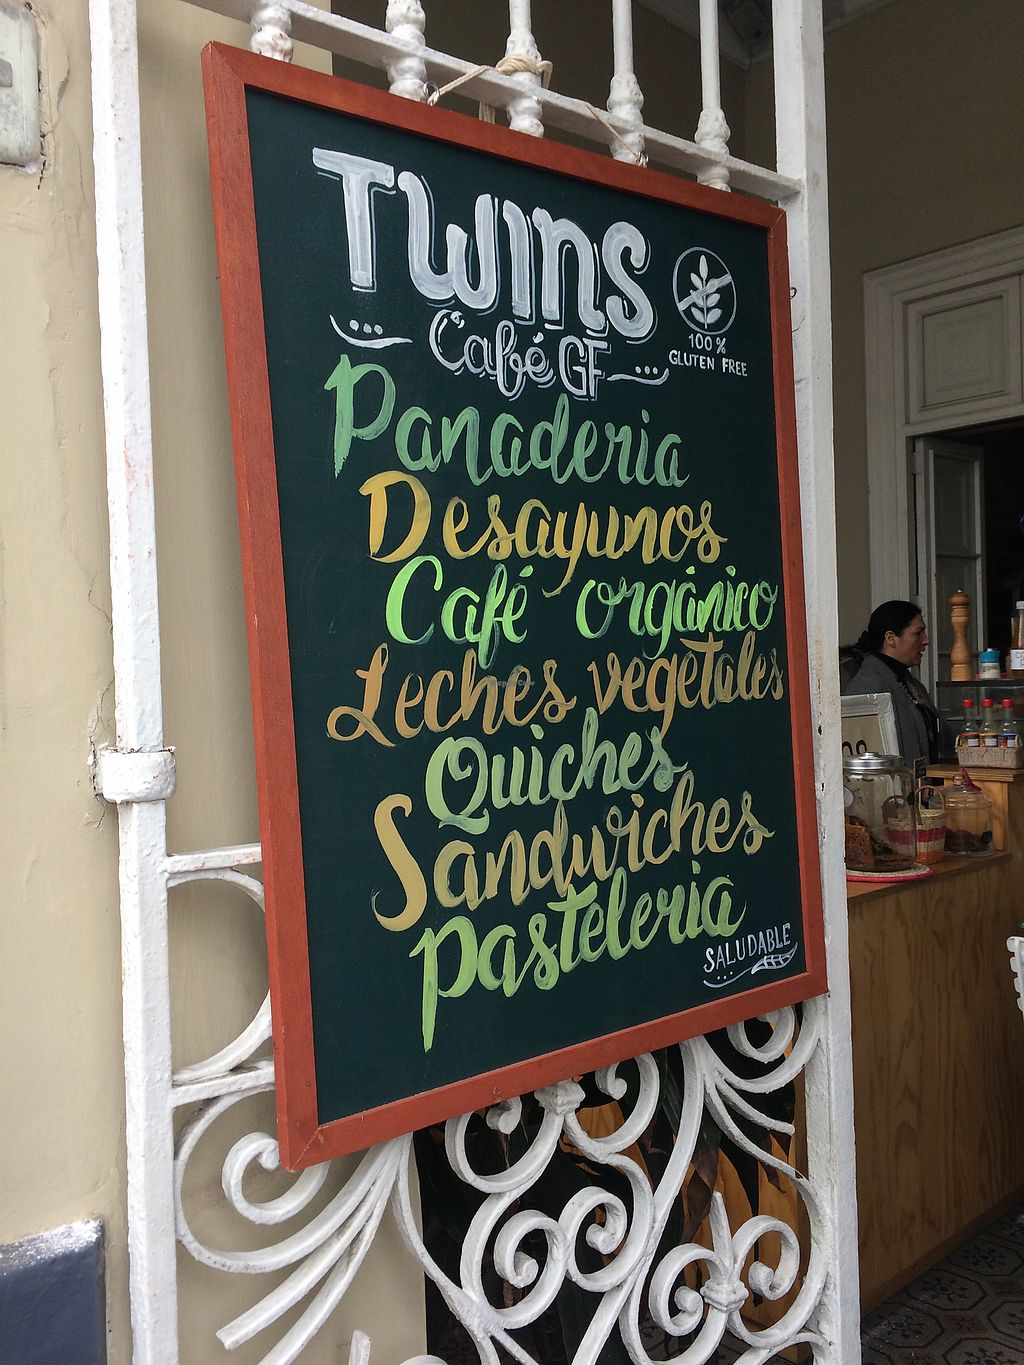 TWINS
Café GF
100%
GLUTEN FREE
Panaderia
Desayunos
Café orgánico
Leches vegetales
Quiches
Sandwiches
Pasteleria
SALUDABLE